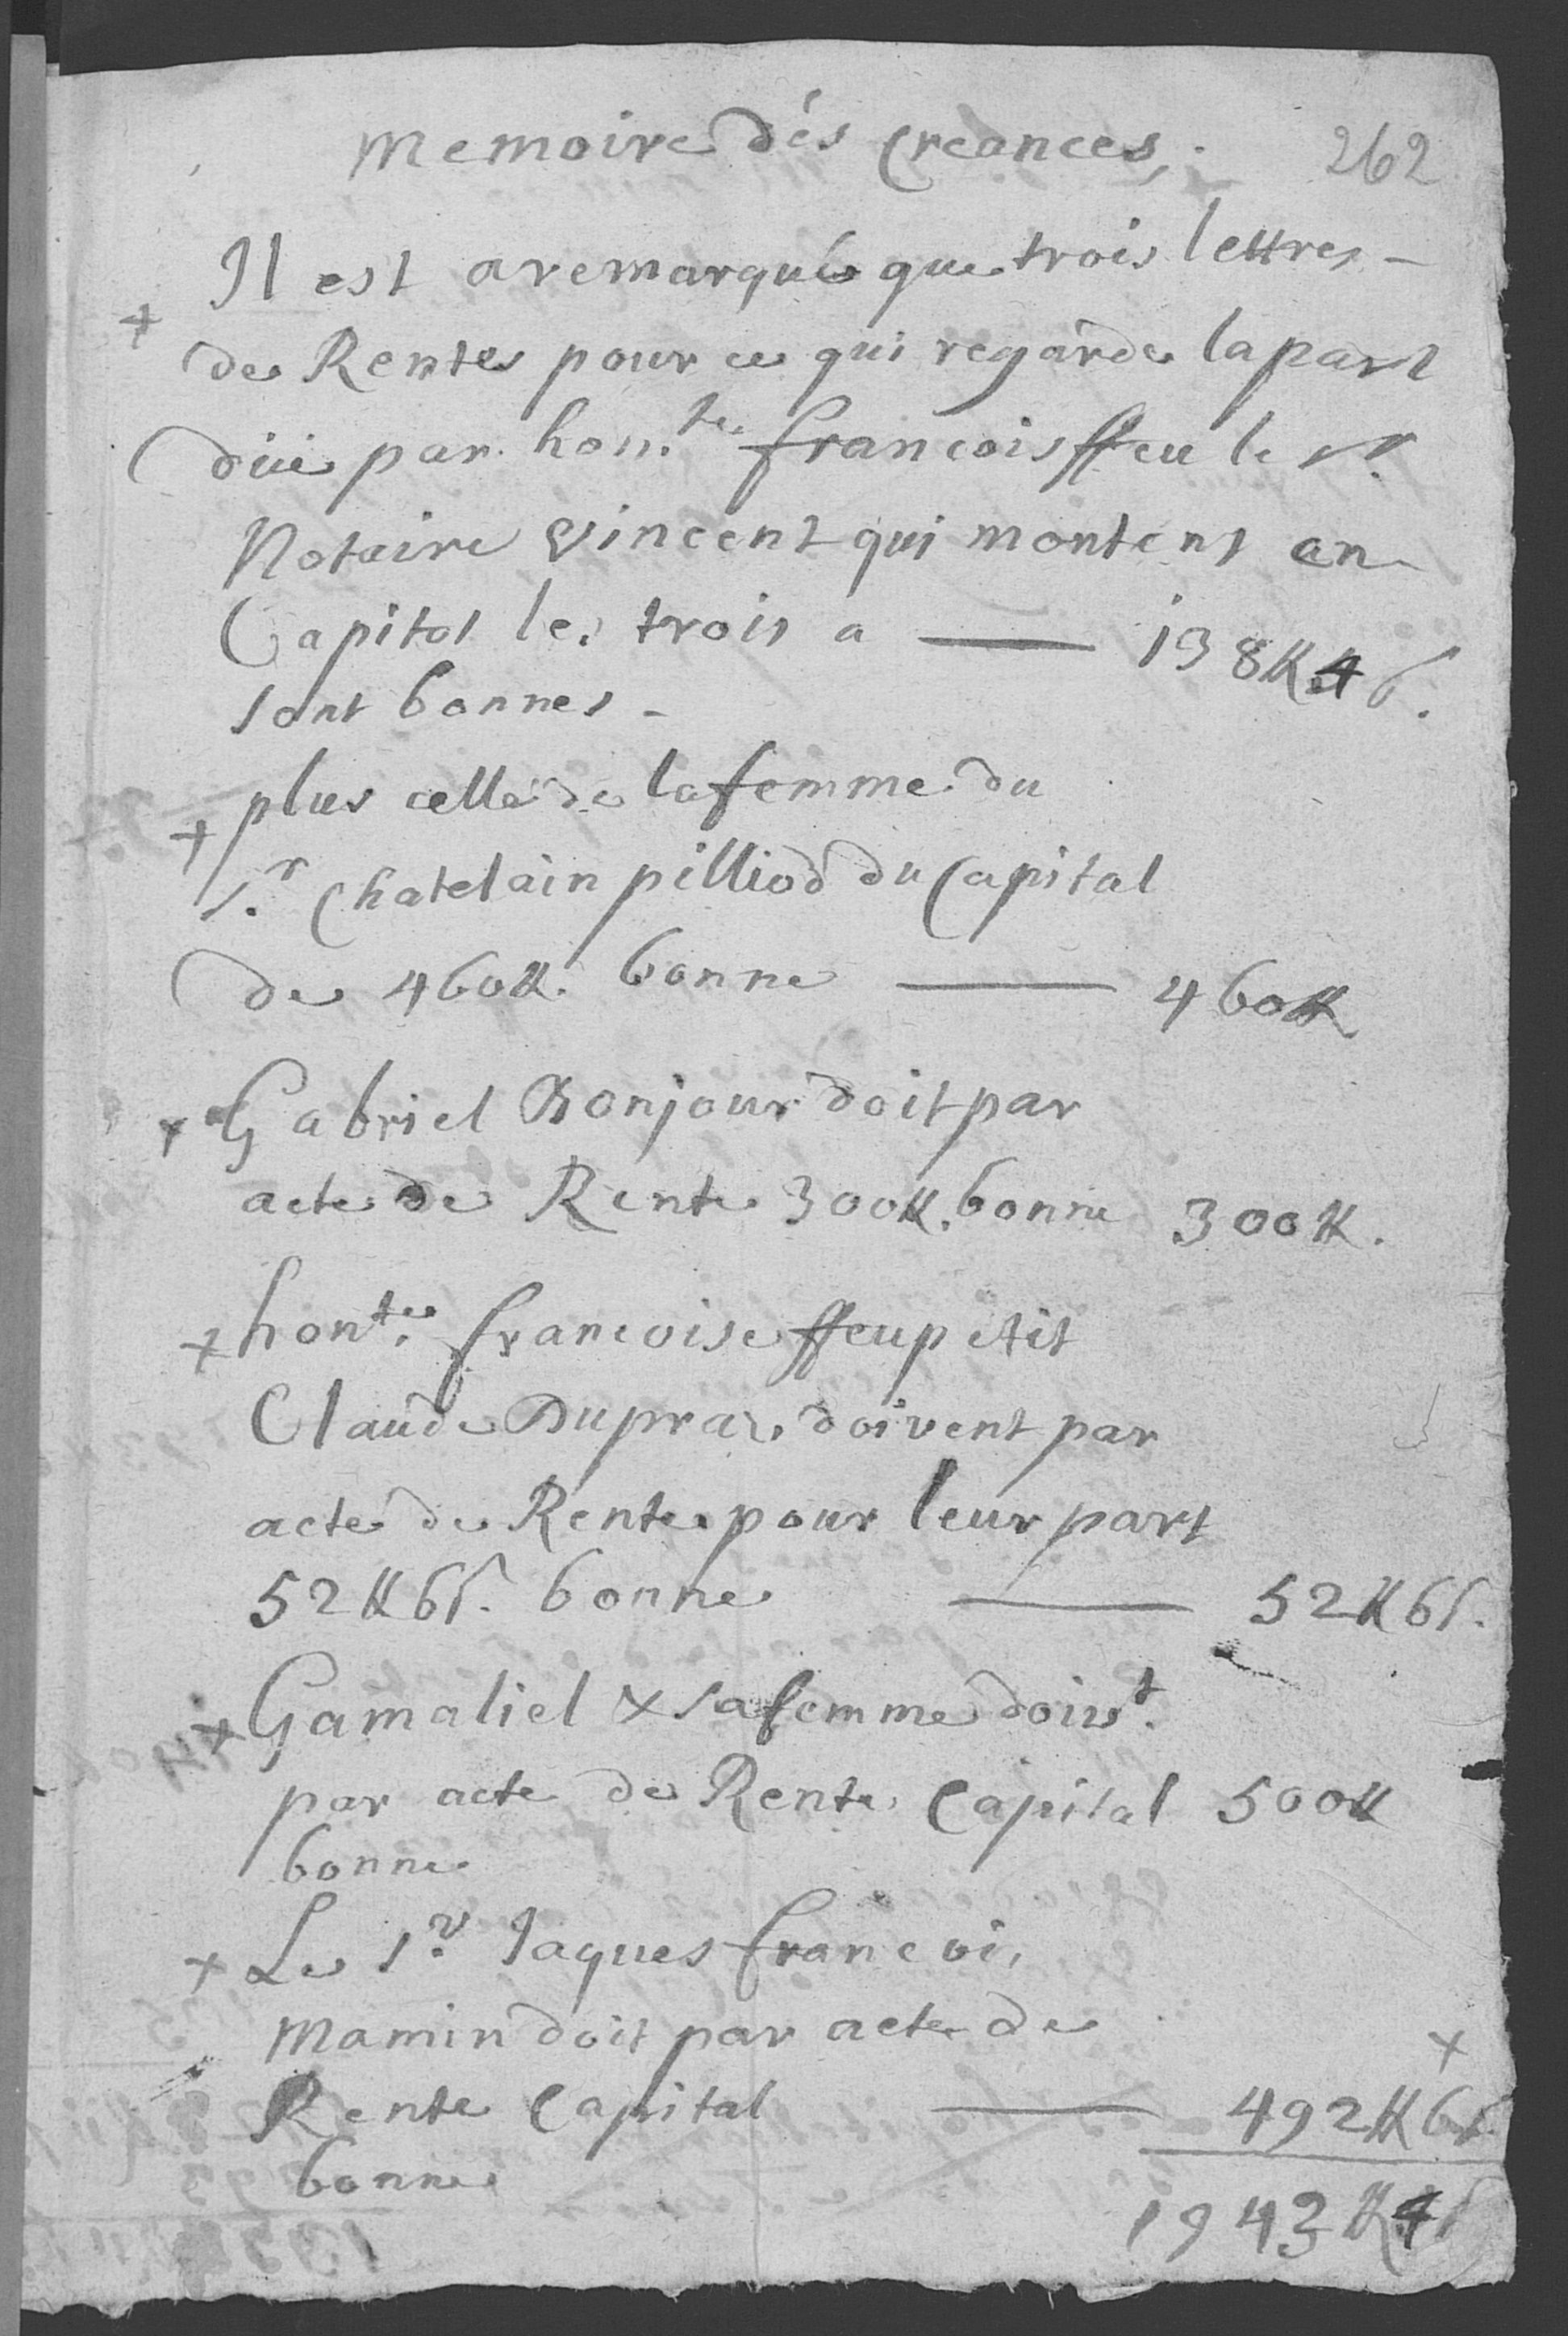 Memoire dés Creances,. 262
Il est a remarqué que trois lettres -
+ de Rentes pour ce qui regarde la part
düe par hon.te francois ffeu le Sr.
Notaire Vincent qui montent en
Capital les trois a — 138 ℔ 4 ß.
sont bonnes -
+ plus celle de la femme du
Sr. Chatelain pilliod du Capital
de 460 ℔. bonne — 460 ℔
+ Gabriel Bonjour doit par
acte de Rente 300 ℔. bonne 300 ℔.
+ hon.te francoise ffeu petit
Claude Dupraz doivent par
acte de Rente pour leur part
52 ℔ 6 ß. bonne — 52 ℔ 6 ß.
+ Gamaliel & sa femme doivt.
par acte de Rente Capital 500 ℔
bonne
+ Le Sr. Jaques francois
Mamin doit par acte de
+
Rente Capital — 492 ℔ 6 ß.
bonne
1943 ℔ 4 ß